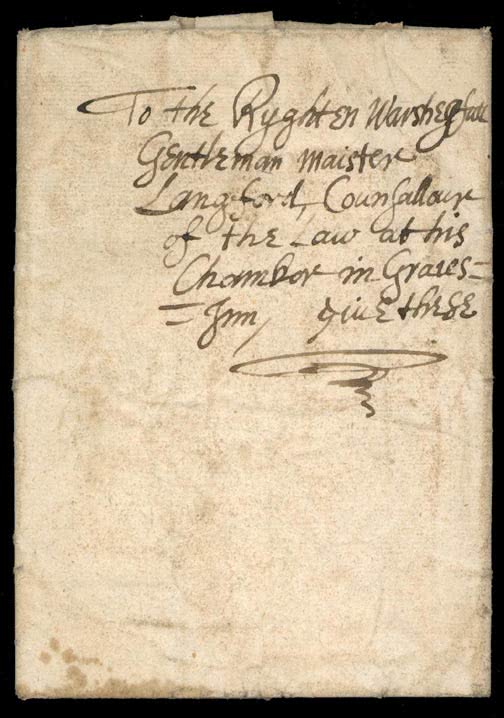 To the Ryghten Warshepfull
Gentleman maister
Langford, Counsallour
of the Law at his
Chambor in Graies=
=Inn, giue these